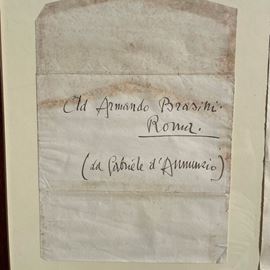 Ad Armando Brasini
Roma.
(da Gabriele d'Annunzio)